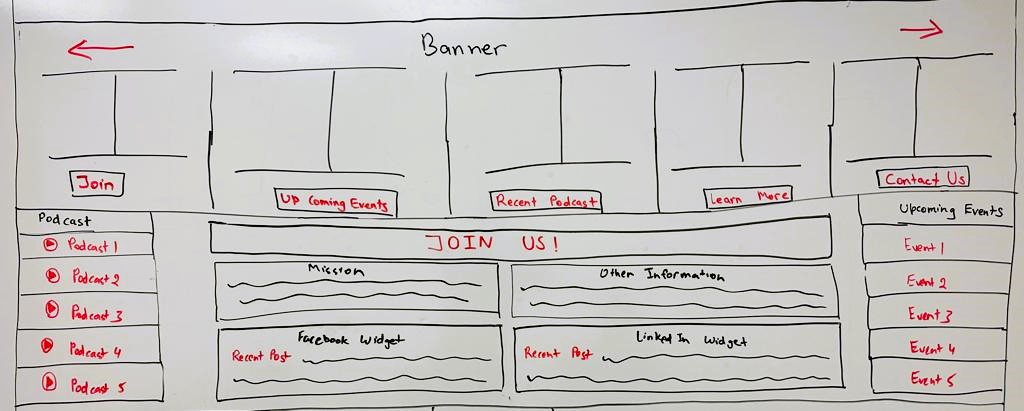 Banner
Join
Up Coming Events
Recent Podcast
Learn More
Contact Us
Podcast
Podcast 1
Podcast 2
Podcast 3
Podcast 4
Podcast 5
JOIN US!
Mission
Other Information
Facebook Widget
Recent Post
Linked In Widget
Recent Post
Upcoming Events
Event 1
Event 2
Event 3
Event 4
Event 5